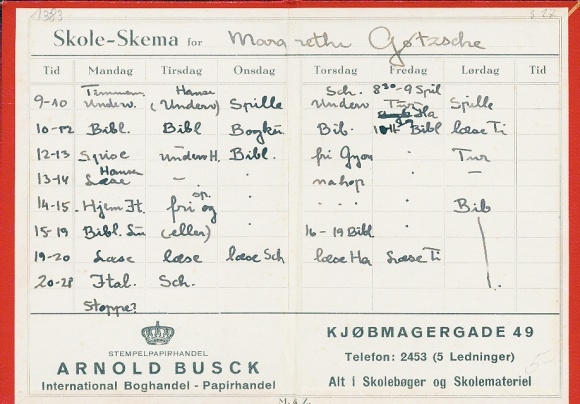 1383
Skole-Skema for Margrethe Gøtzsche
Tid Mandag Tirsdag Onsdag Torsdag Fredag Lørdag Tid
Hanse Sch. 8 30-9 Spil
9-10 Underv. (Underv) Spille Underv Tur Spille
10-12 Bibl. Bibl Bib. Bibl læse Ti
12-13 Spise underv H. Bibl. fri Tur
Hanse
13-14 Læse — " —
sp.
14-15. Hjem It. fri og Bib
15-19 Bibl. (eller) 16-19 Bibl
19-20 Læse læse læse Sch læse Ha Læse Ti
20-28 Ital. Sch.
Stoppe?
STEMPELPAPIRHANDEL
ARNOLD BUSCK
International Boghandel - Papirhandel
KJØBMAGERGADE 49
Telefon: 2453 (5 Ledninger)
Alt i Skolebøger og Skolemateriel